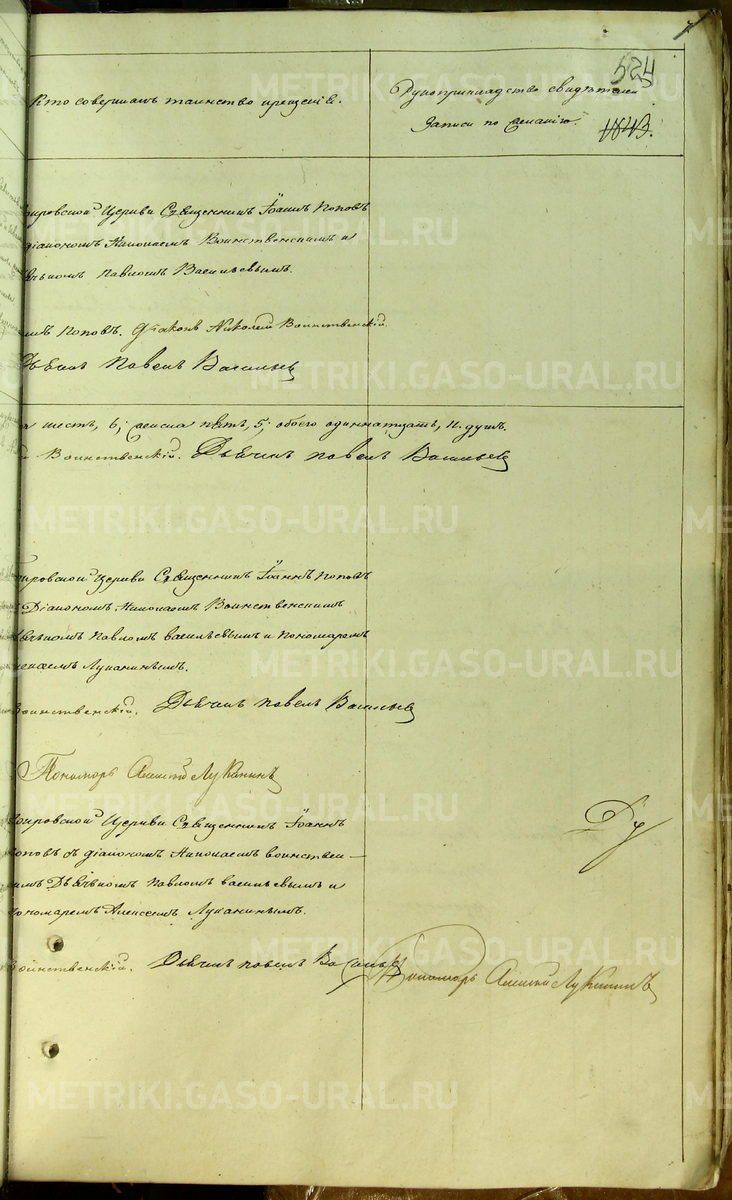 524
Кто совершалъ таинство крещенія.
Рукоприкладство свидѣтелей
записи по желанію.
1843.
Покровской Церкви Священникъ Іоаннъ Поповъ
діакономъ Николаемъ Воинственскимъ и
Павломъ Васильевымъ.
Поповъ. Діаконъ Николай Воинственскій.
Дьячекъ Павелъ Васильевъ
шесть, 6; женска пять, 5; обоего одиннатцать, 11. душъ.
Воинственскій. Дьячекъ Павелъ Васильевъ
Покровской Церкви Священникъ Іоаннъ Поповъ
Діакономъ Николаемъ Воинственскимъ
Павломъ Васильевымъ и Пономаремъ
Луканинымъ.
Воинственскій. Дьячекъ Павелъ Васильевъ
Пономарь Алексѣй Луканинъ
Покровской Церкви Священникъ Іоаннъ
Поповъ съ діакономъ Николаемъ Воинствен-
скимъ Дьячкомъ Павломъ Васильевымъ и
пономаремъ Алексеемъ Луканинымъ.
Воинственскій. Дьячекъ Павелъ Васильевъ Пономарь Алексѣй Луканинъ
Ду
METRIKI.GASO-URAL.RU